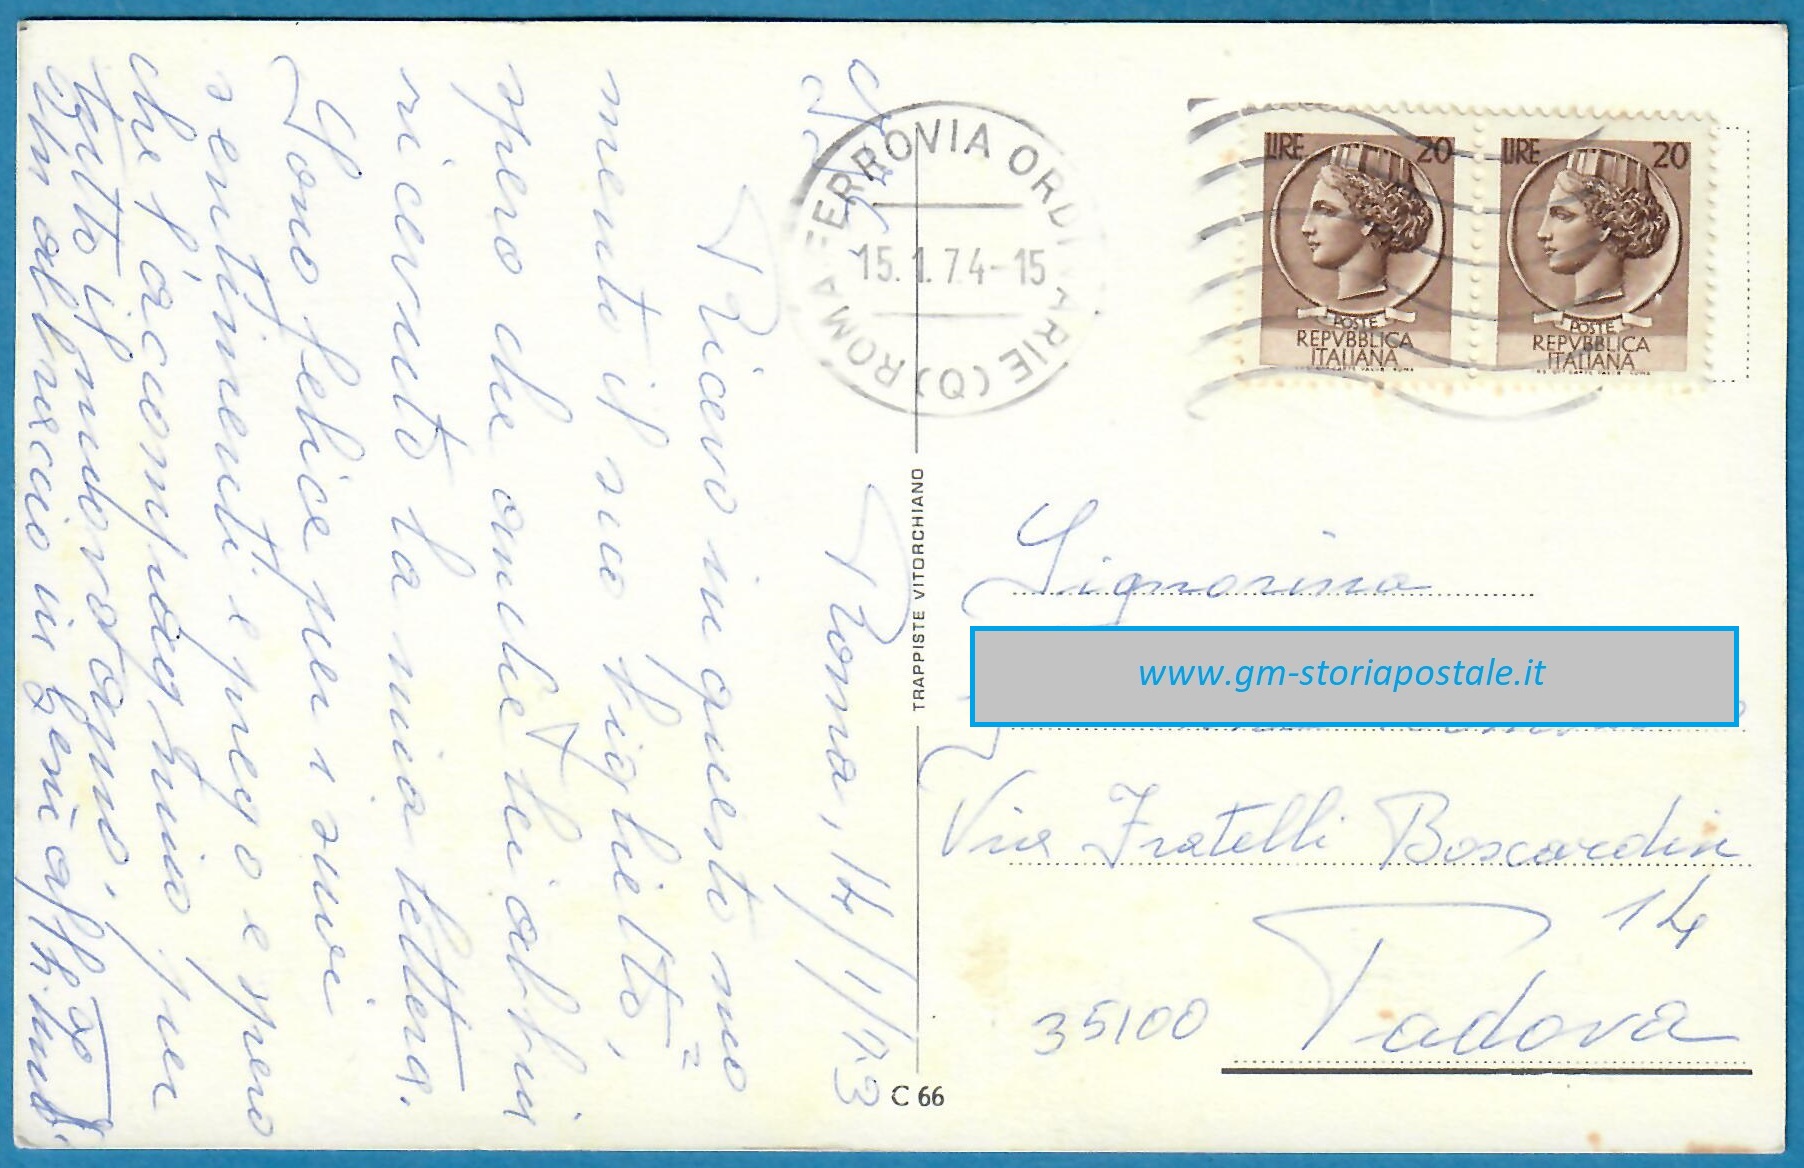 Roma, 14/1/73
Ricevo in questo mo
mento il suo biglietto,
spero che anche lei abbia
ricevuto la mia lettera.
Sono felice per i suoi
sentimenti e prego e spero
che l'accompagnino per
tutto il
Un abbraccio in Gesù
ROMA FERROVIA ORDINARIE (Q)
15.1.74-15
TRAPPISTE VITORCHIANO
C 66
LIRE 20
POSTE
REPVBBLICA
ITALIANA
LIRE 20
POSTE
REPVBBLICA
ITALIANA
Signorina
www.gm-storiapostale.it
Via Fratelli Boscardin
14
35100 Padova